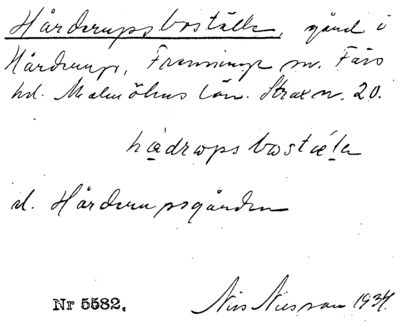 Hårderupsboställe, gård i
Hårderup, Fränninge sn. Färs
hd. Malmöhus län. Skrevn. 20.
hadrapsbostæla
el. Hårderupsgården
Nr 5582.
Nils Nilsson 1934.